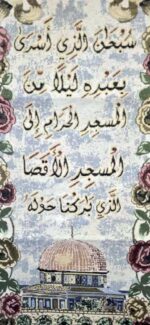 سُبْحَٰنَ الَّذِي أَسْرَىٰ
بِعَبْدِهِ لَيْلًا مِّنَ
الْمَسْجِدِ الْحَرَامِ إِلَى
الْمَسْجِدِ الْأَقْصَا
الَّذِي بَٰرَكْنَا حَوْلَهُ